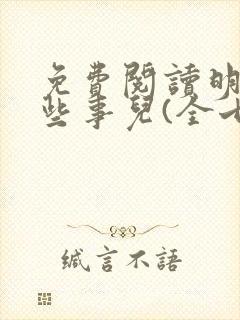 免費閱讀明
些事兒(全七
緘言不語